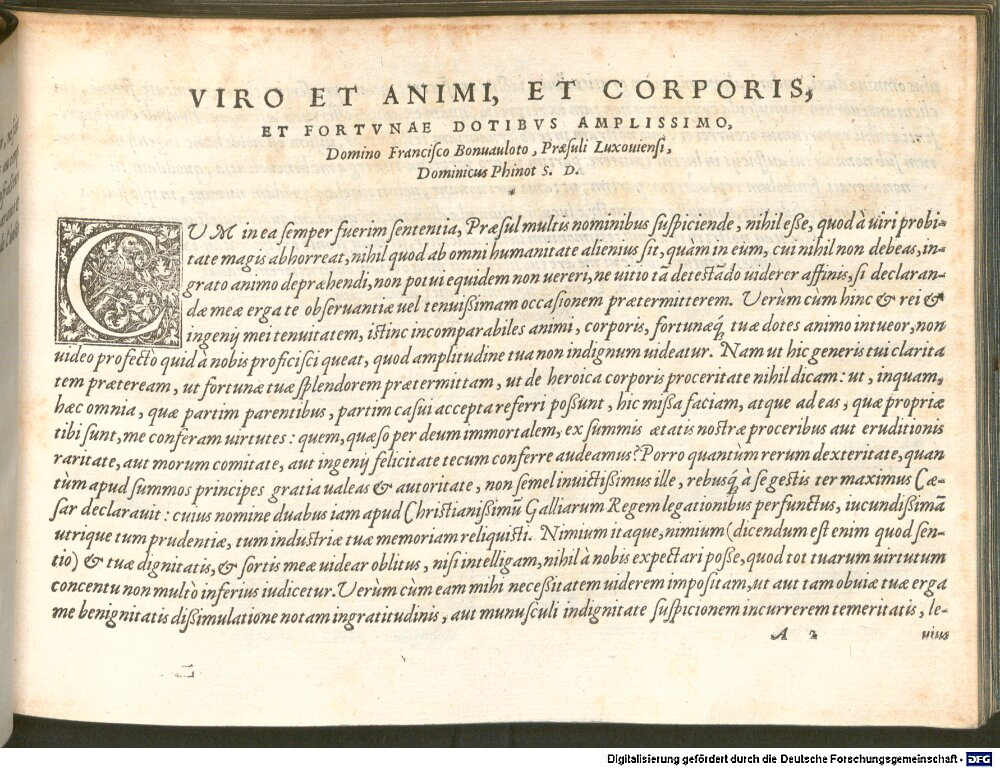 VIRO ET ANIMI, ET CORPORIS,
ET FORTVNAE DOTIBVS AMPLISSIMO,
Domino Francisco Bonuauloto, Præsuli Luxouiensi,
Dominicus Phinot S. D.
*
CUM in ea semper fuerim sententia, Præsul multis nominibus suspiciende, nihil esse, quod à uiri probi-
tate magis abhorreat, nihil quod ab omni humanitate alienius sit, quàm in eum, cui nihil non debeas, in-
grato animo depræhendi, non potui equidem non uereri, ne uitio tã detestãdo uiderer affinis, si declaran-
dæ meæ erga te obseruantiæ uel tenuissimam occasionem prætermitterem. Verùm cum hinc & rei &
ingenij mei tenuitatem, istinc incomparabiles animi, corporis, fortunæq́ tuæ dotes animo intueor, non
uideo profecto quid à nobis proficisci queat, quod amplitudine tua non indignum uideatur. Nam ut hic generis tui clarita
tem præteream, ut fortunæ tuæ splendorem prætermittam, ut de heroica corporis proceritate nihil dicam: ut, inquam,
hæc omnia, quæ partim parentibus, partim casui accepta referri possunt, hic missa faciam, atque ad eas, quæ propriæ
tibi sunt, me conferam uirtutes: quem, quæso per deum immortalem, ex summis ætatis nostræ proceribus aut eruditionis
raritate, aut morum comitate, aut ingenij felicitate tecum conferre audeamus? Porro quantùm rerum dexteritate, quan
tùm apud summos principes gratia ualeas & autoritate, non semel inuictissimus ille, rebusq́ à se gestis ter maximus Cæ-
sar declarauit: cuius nomine duabus iam apud Christianissimũ Galliarum Regem legationibus perfunctus, iucundissimã
utrique tum prudentiæ, tum industriæ tuæ memoriam reliquisti. Nimium itaque, nimium (dicendum est enim quod sen-
tio) & tuæ dignitatis, & sortis meæ uidear oblitus, nisi intelligam, nihil à nobis expectari posse, quod tot tuarum uirtutum
concentu non multò inferius iudicetur. Verùm cùm eam mihi necessitatem uiderem impositam, ut aut tam obuiæ tuæ erga
me benignitatis dissimulatione notam ingratitudinis, aut munusculi indignitate suspicionem incurrerem temeritatis, le-
A 2 uius
Digitalisierung gefördert durch die Deutsche Forschungsgemeinschaft - DFG